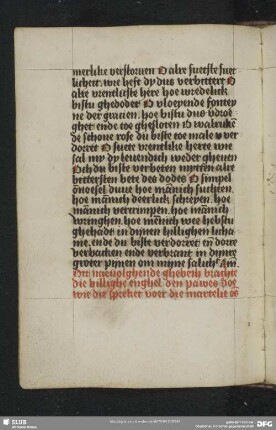 merlike verstorven O alre suetste suet
licheit, wie heft dy dus verbittert O
alre vrentlicste here hoe wredelick
bistu ghedodet O vloyende fonteyne
ne der gracien, hoe bistu dus vdroe
ghet ende toe ghesloten O
de schone rose du biste toe male v ver
dorret O suete vrentlike herte wie
sal my dy levendich weder gheven
O du biste verbeten myrren alre
bitterste bete des dodes O simpel
onnosel duve hoe mānich suchten,
hoe mānich deerlick schreyen, hoe
mānich vercrimpen, hoe mānich
wringhen, hoe mānich wee hebstu
ghehadt in dynen hillighen licha
me, ende du biste verdorret en dorre
verbacken ende verbrant in dynre
groter pynen om myne salich Am̄
Dit naevolghende ghebeth brachte
die hillighe enghel den pawes doe
wie die spreket voer die martelie
SLUB
DFG